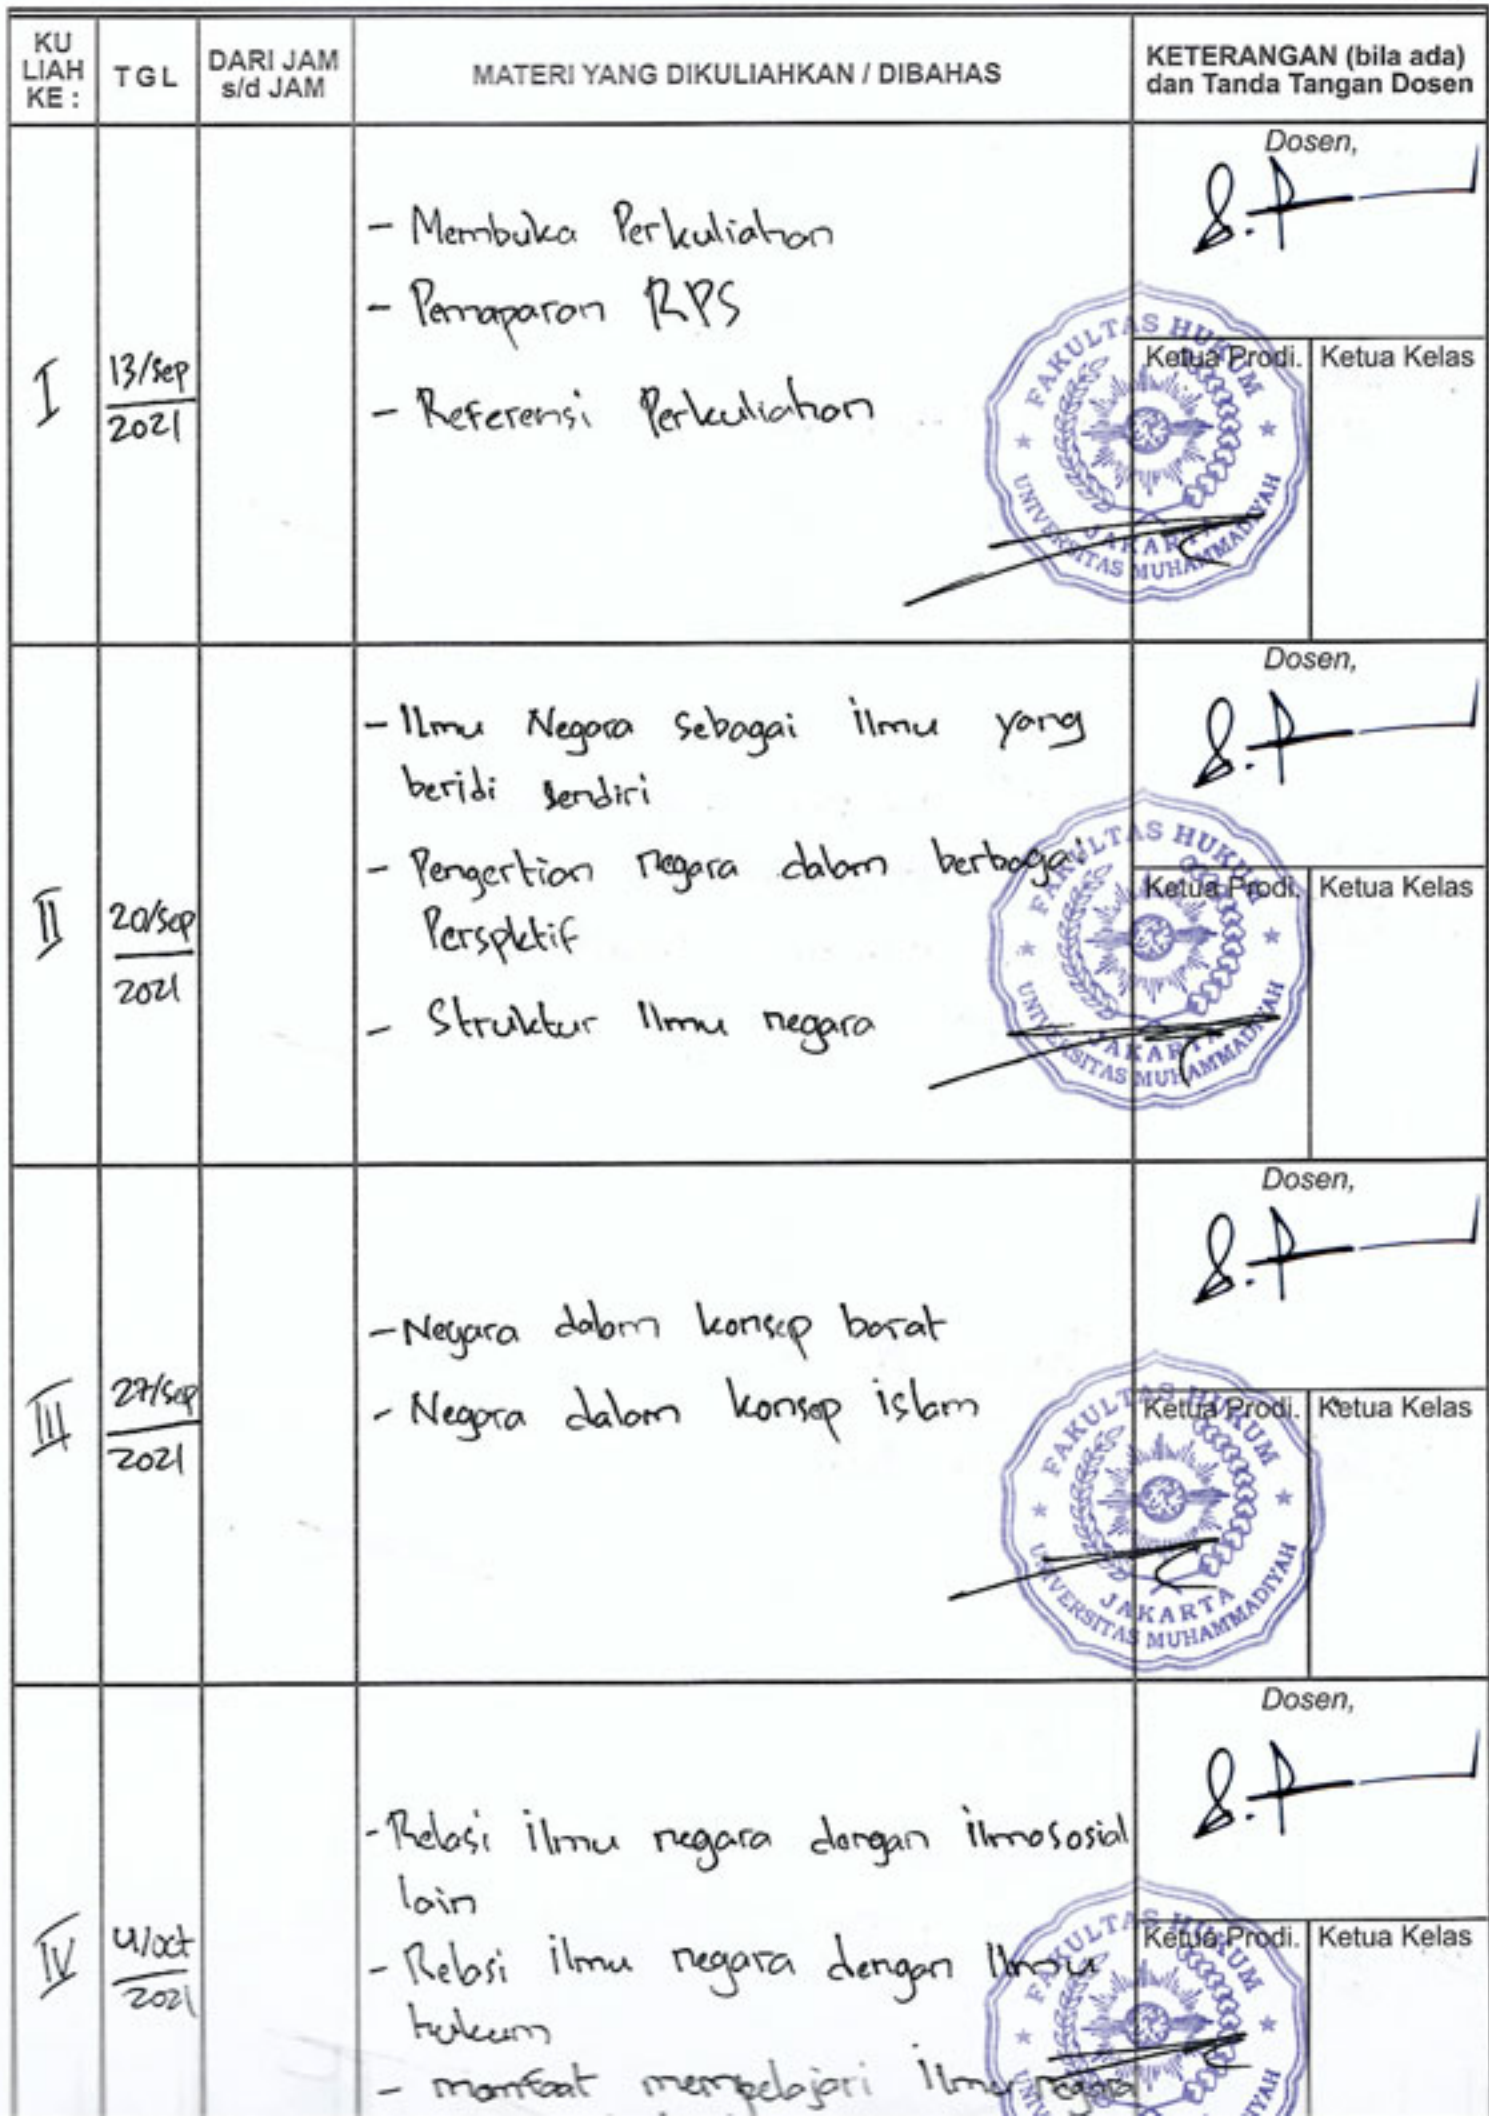 KU
LIAH
KE :
TGL
DARI JAM
s/d JAM
MATERI YANG DIKULIAHKAN / DIBAHAS
KETERANGAN (bila ada)
dan Tanda Tangan Dosen
I
13/sep
2021
- Membuka Perkuliahan
- Pemaparan RPS
- Referensi Perkuliahan
Dosen,
Ketua Prodi.
Ketua Kelas
FAKULTAS HUKUM
UNIVERSITAS MUHAMMADIYAH
JAKARTA
II
20/sep
2021
- Ilmu Negara sebagai ilmu yang
beridi sendiri
- Pengertian negara dalam berbagai
Perspktif
- Struktur Ilmu negara
Dosen,
Ketua Prodi.
Ketua Kelas
FAKULTAS HUKUM
UNIVERSITAS MUHAMMADIYAH
JAKARTA
III
27/sep
2021
- Negara dalam konsep barat
- Negara dalam konsep islam
Dosen,
Ketua Prodi.
Ketua Kelas
FAKULTAS HUKUM
UNIVERSITAS MUHAMMADIYAH
JAKARTA
IV
4/oct
2021
- Relasi ilmu negara dengan ilmosósial
lain
- Relasi ilmu negara dengan Ilmu
hukum
- manfaat mempelajari Ilmu negara
Dosen,
Ketua Prodi.
Ketua Kelas
FAKULTAS HUKUM